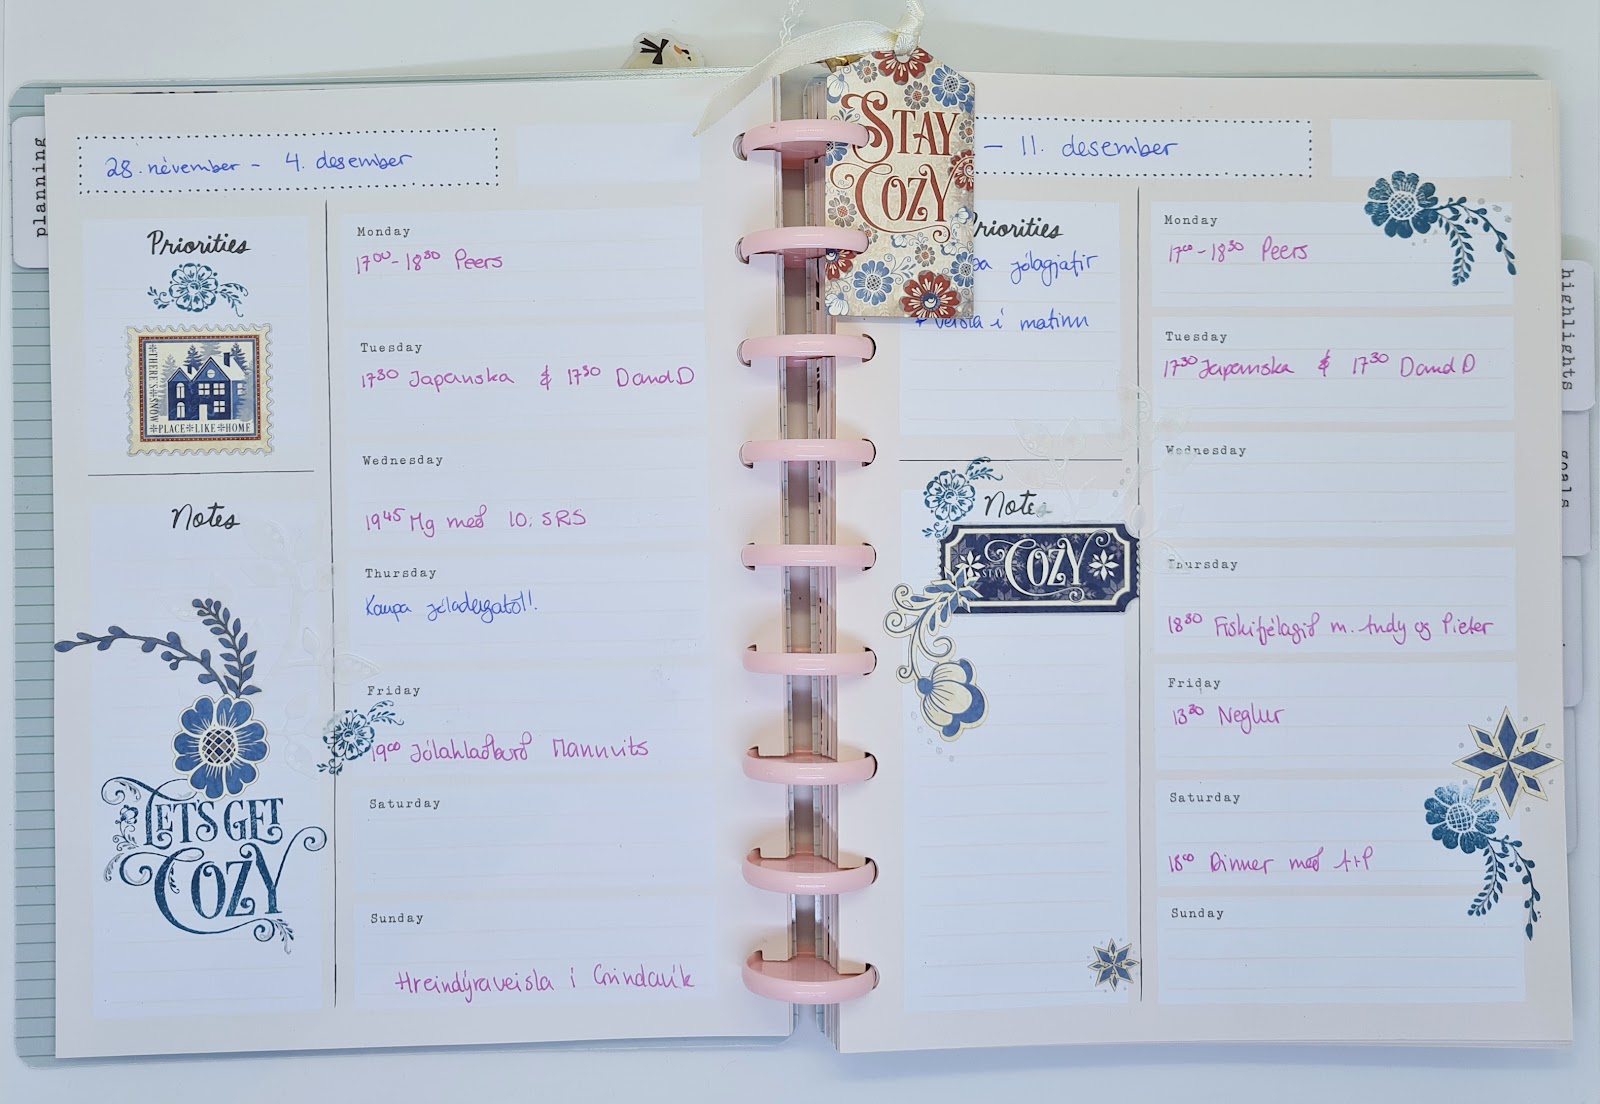 planning
28. nóvember - 4. desember
Priorities
THERE'S SNOW
PLACE LIKE HOME
Notes
LET'S GET
COZY
Monday
17⁰⁰-18³⁰ Peers
Tuesday
17³⁰ Japanska & 17³⁰ DandD
Wednesday
19⁴⁵ Mg með 10. SRS
Thursday
Kaupa jóladagatöl!!
Friday
19⁰⁰ Jólahlaðborð Mannvits
Saturday
Sunday
Hreindýraveisla í Grindavík
STAY
COZY
- 11. desember
Priorities
jólagjafir
+ versla í matinn
Notes
STAY COZY
Monday
17⁰⁰-18³⁰ Peers
Tuesday
17³⁰ Japanska & 17³⁰ DandD
Wednesday
Thursday
18³⁰ Fiskifélagið m. Andy og Pieter
Friday
13³⁰ Neglur
Saturday
18⁰⁰ Dinner með A+P
Sunday
highlights
goals